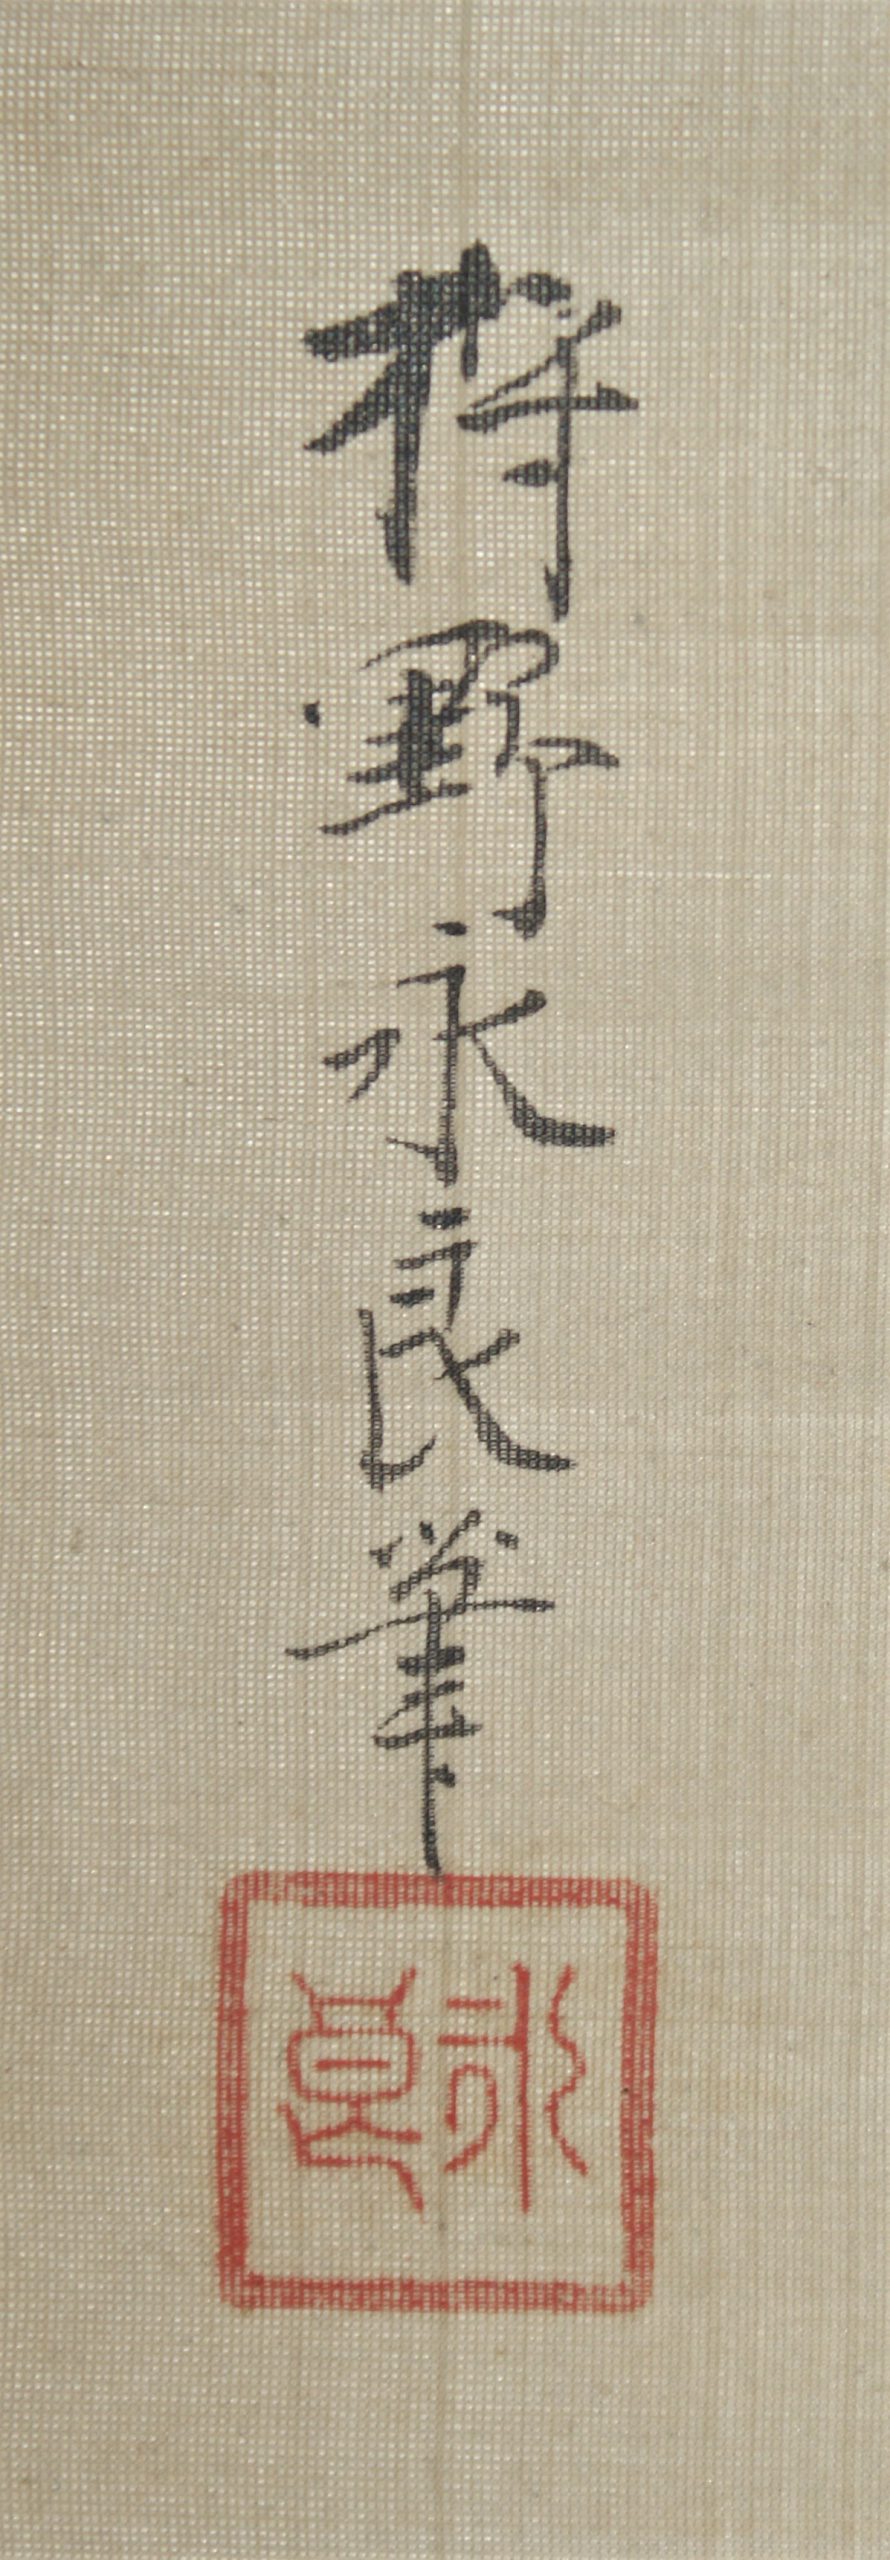 狩野永良筆
永良